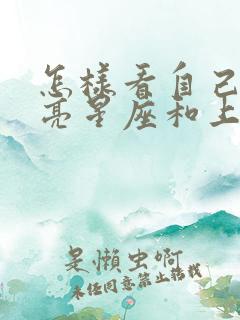 怎樣看自己
亮星座和上
是懶虫啊
未经同意禁止转载